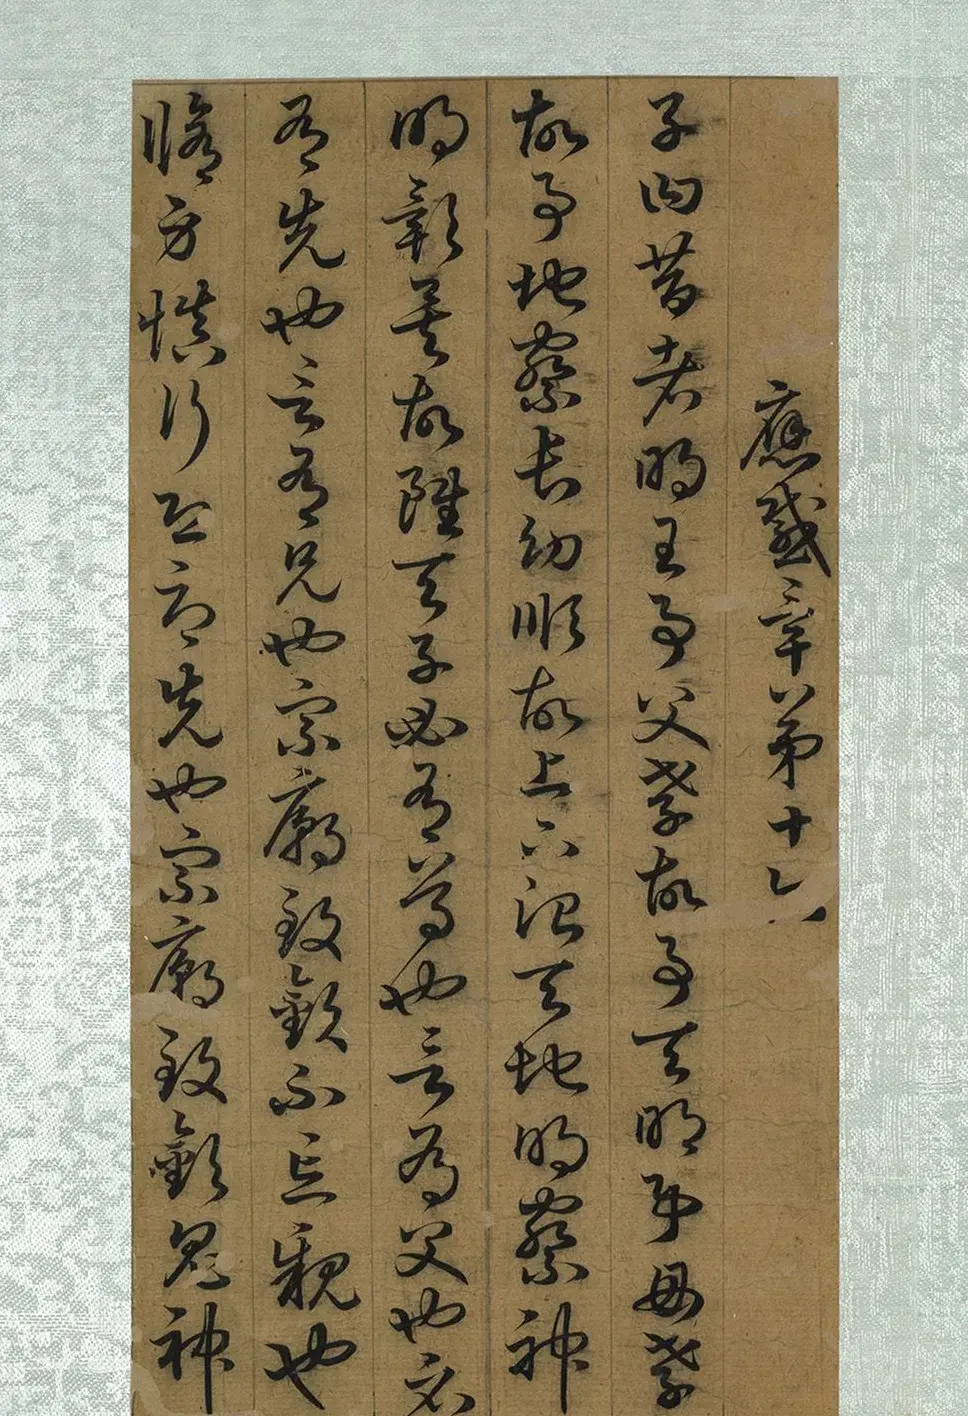 應感章第十六
子曰昔者明王事父孝故事天明事母孝
故事地察長幼順故上下治天地明察神
明彰矣故雖天子必有尊也言有父也必
有先也言有兄也宗廟致敬不忘親也
脩身慎行恐辱先也宗廟致敬鬼神